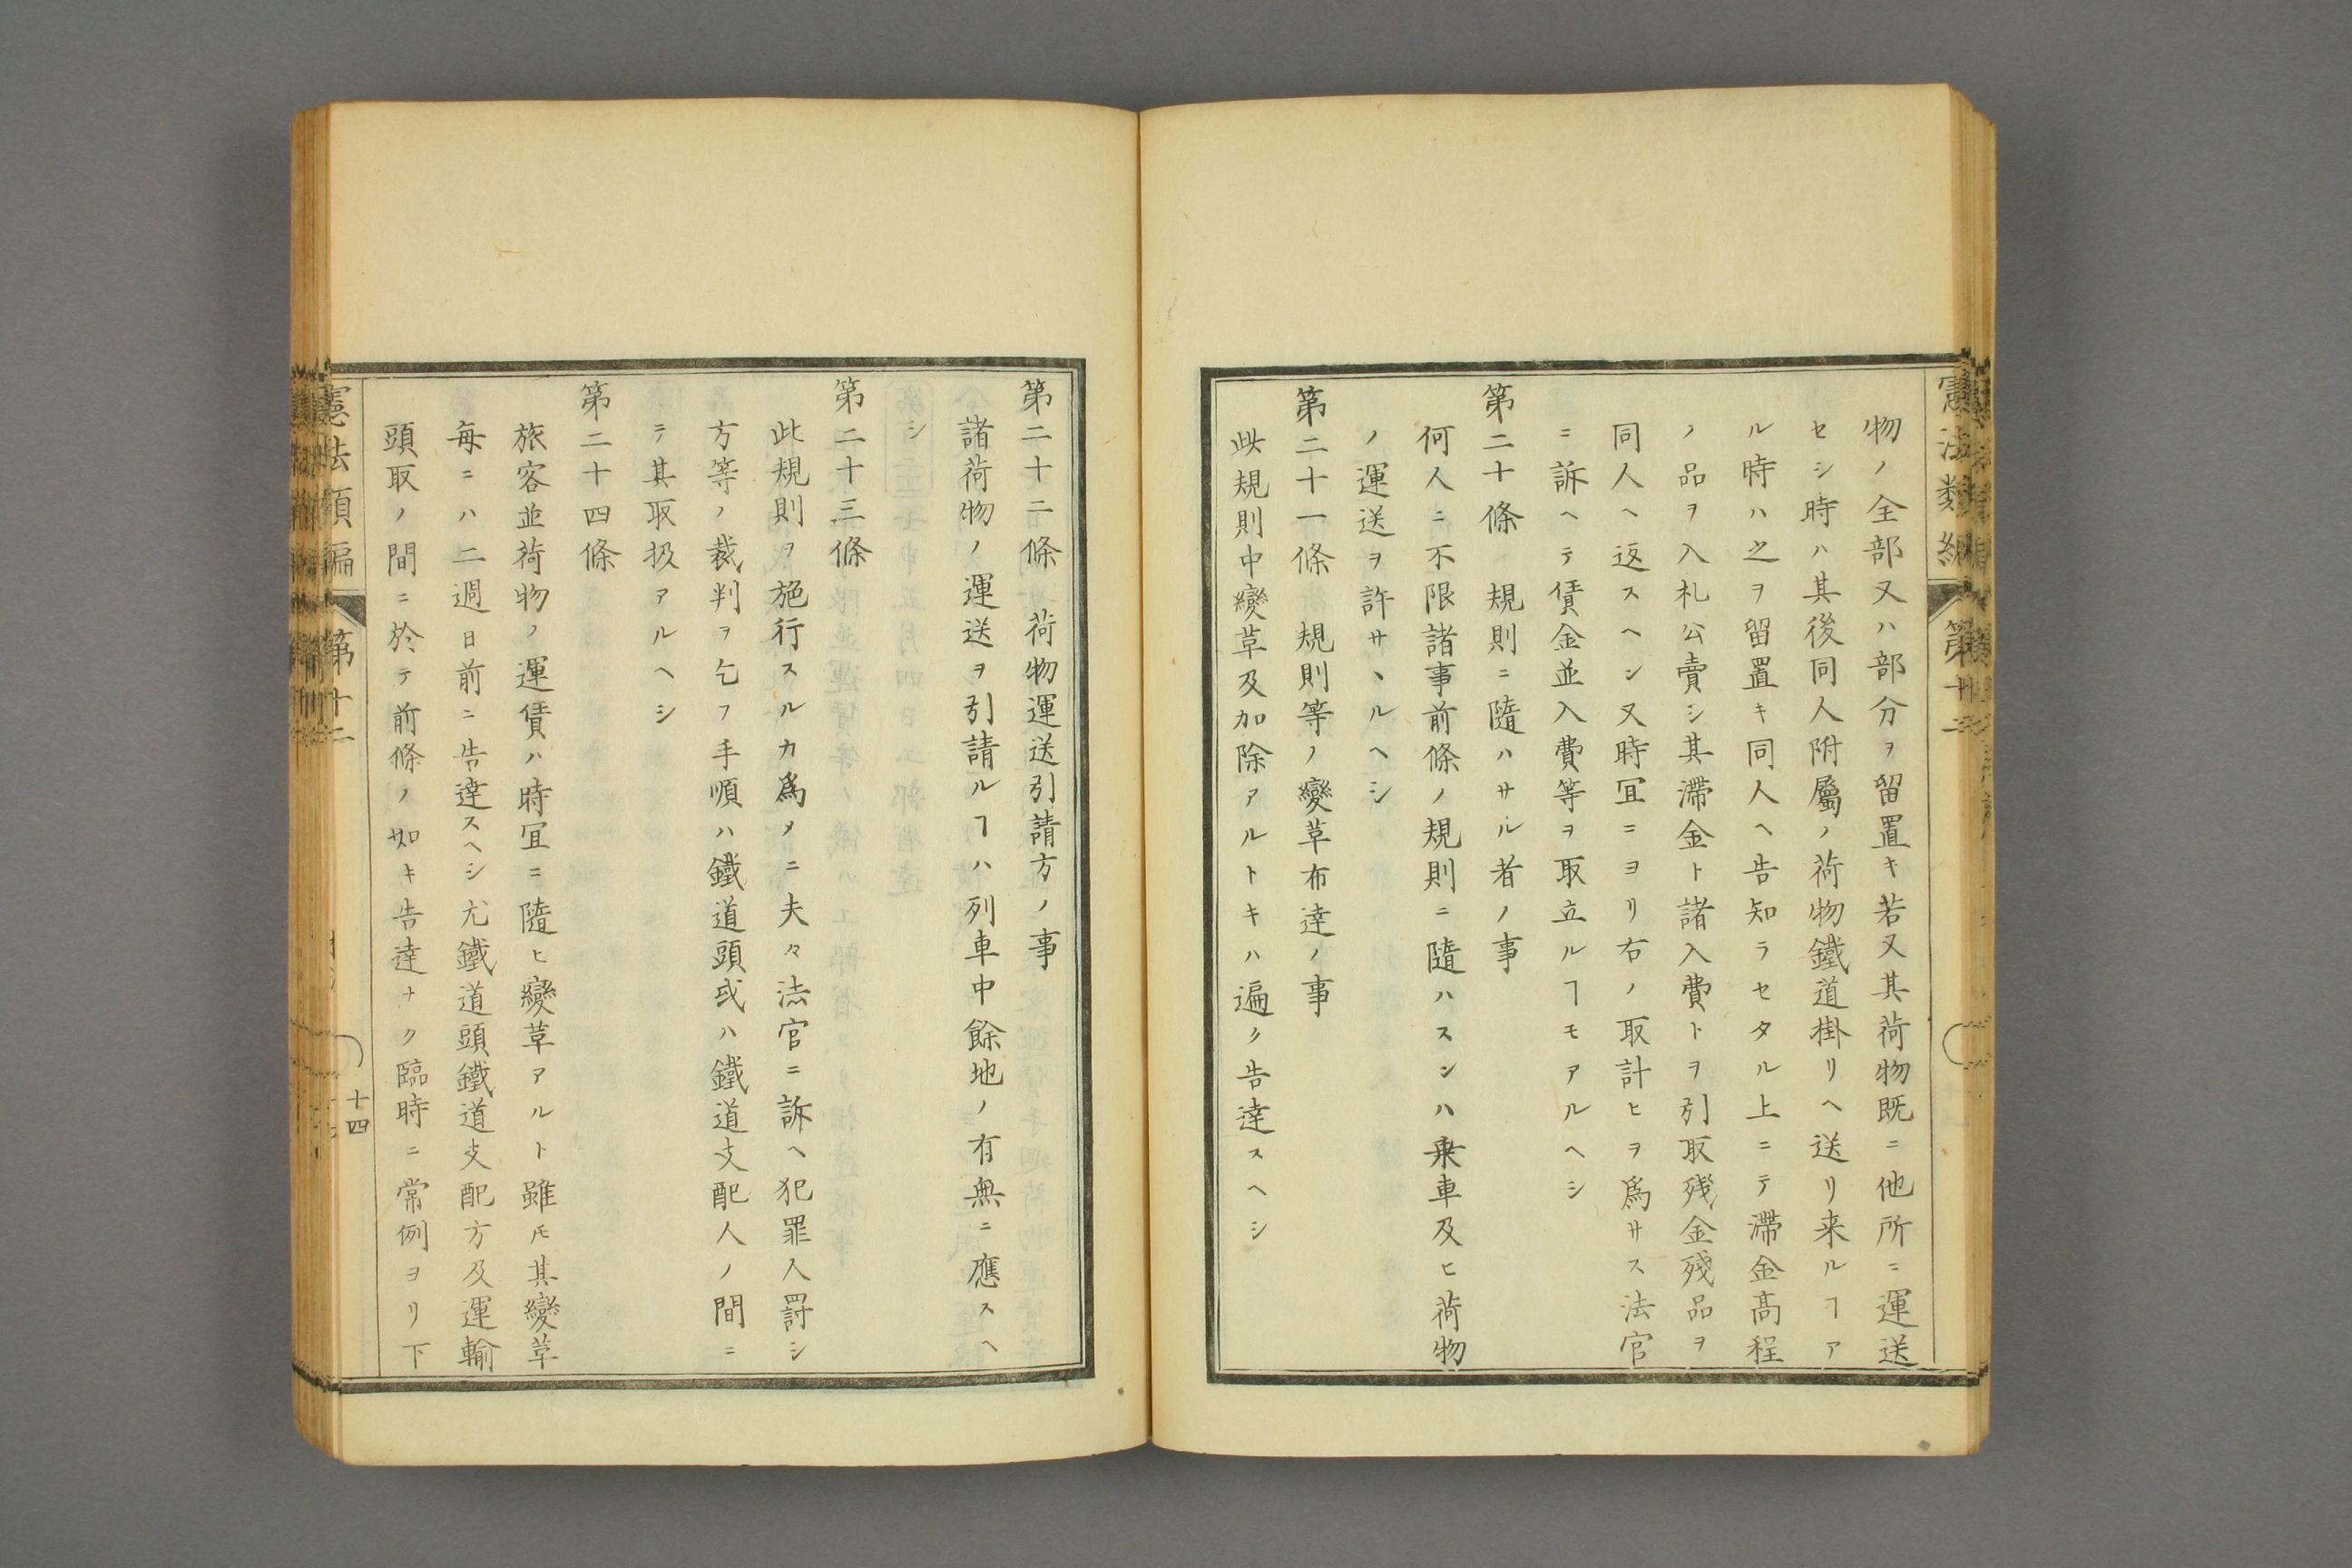 憲法類編
第十二
物ノ全部又ハ部分ヲ留置キ若又其荷物既ニ他所ニ運送
セシ時ハ其後同人附屬ノ荷物鐵道掛リヘ送リ来ルヿア
ル時ハ之ヲ留置キ同人ヘ告知ラセタル上ニテ滯金高程
ノ品ヲ入札公賣シ其滯金ト諸入費トヲ引取残金殘品ヲ
同人ヘ返スヘシ又時冝ニヨリ右ノ取計ヒヲ爲サス法官
ニ訴ヘテ賃金並入費等ヲ取立ルヿモアルヘシ
第二十條 規則ニ隨ハサル者ノ事
何人ニ不限諸事前條ノ規則ニ隨ハスンハ乗車及ヒ荷物
ノ運送ヲ許サヽルヘシ
第二十一條 規則等ノ變革布達ノ事
此規則中變革及加除アルトキハ遍ク告達スヘシ
第二十二條 荷物運送引請方ノ事
諸荷物ノ運送ヲ引請ルヿハ列車中餘地ノ有無ニ應スヘ
シ
第二十三條
此規則ヲ施行スルカ爲メニ夫々法官ニ訴ヘ犯罪人罰シ
方等ノ裁判ヲ乞フ手順ハ鐵道頭或ハ鐵道支配人ノ間ニ
テ其取扱アルヘシ
第二十四條
旅客並荷物ノ運賃ハ時冝ニ隨ヒ變革アルト雖𪜈其變革
毎ニハ二週日前ニ告達スヘシ尤鐵道頭鐵道支配方及運輸
頭取ノ間ニ於テ前條ノ如キ告達ナク臨時ニ常例ヨリ下
憲法類編
第十二
十四